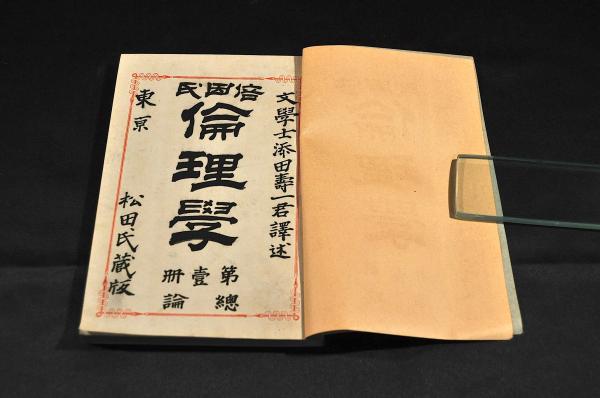 文學士添田壽一君譯述
倍因氏
倫理學
第壹冊
總論
東亰 松田氏蔵版